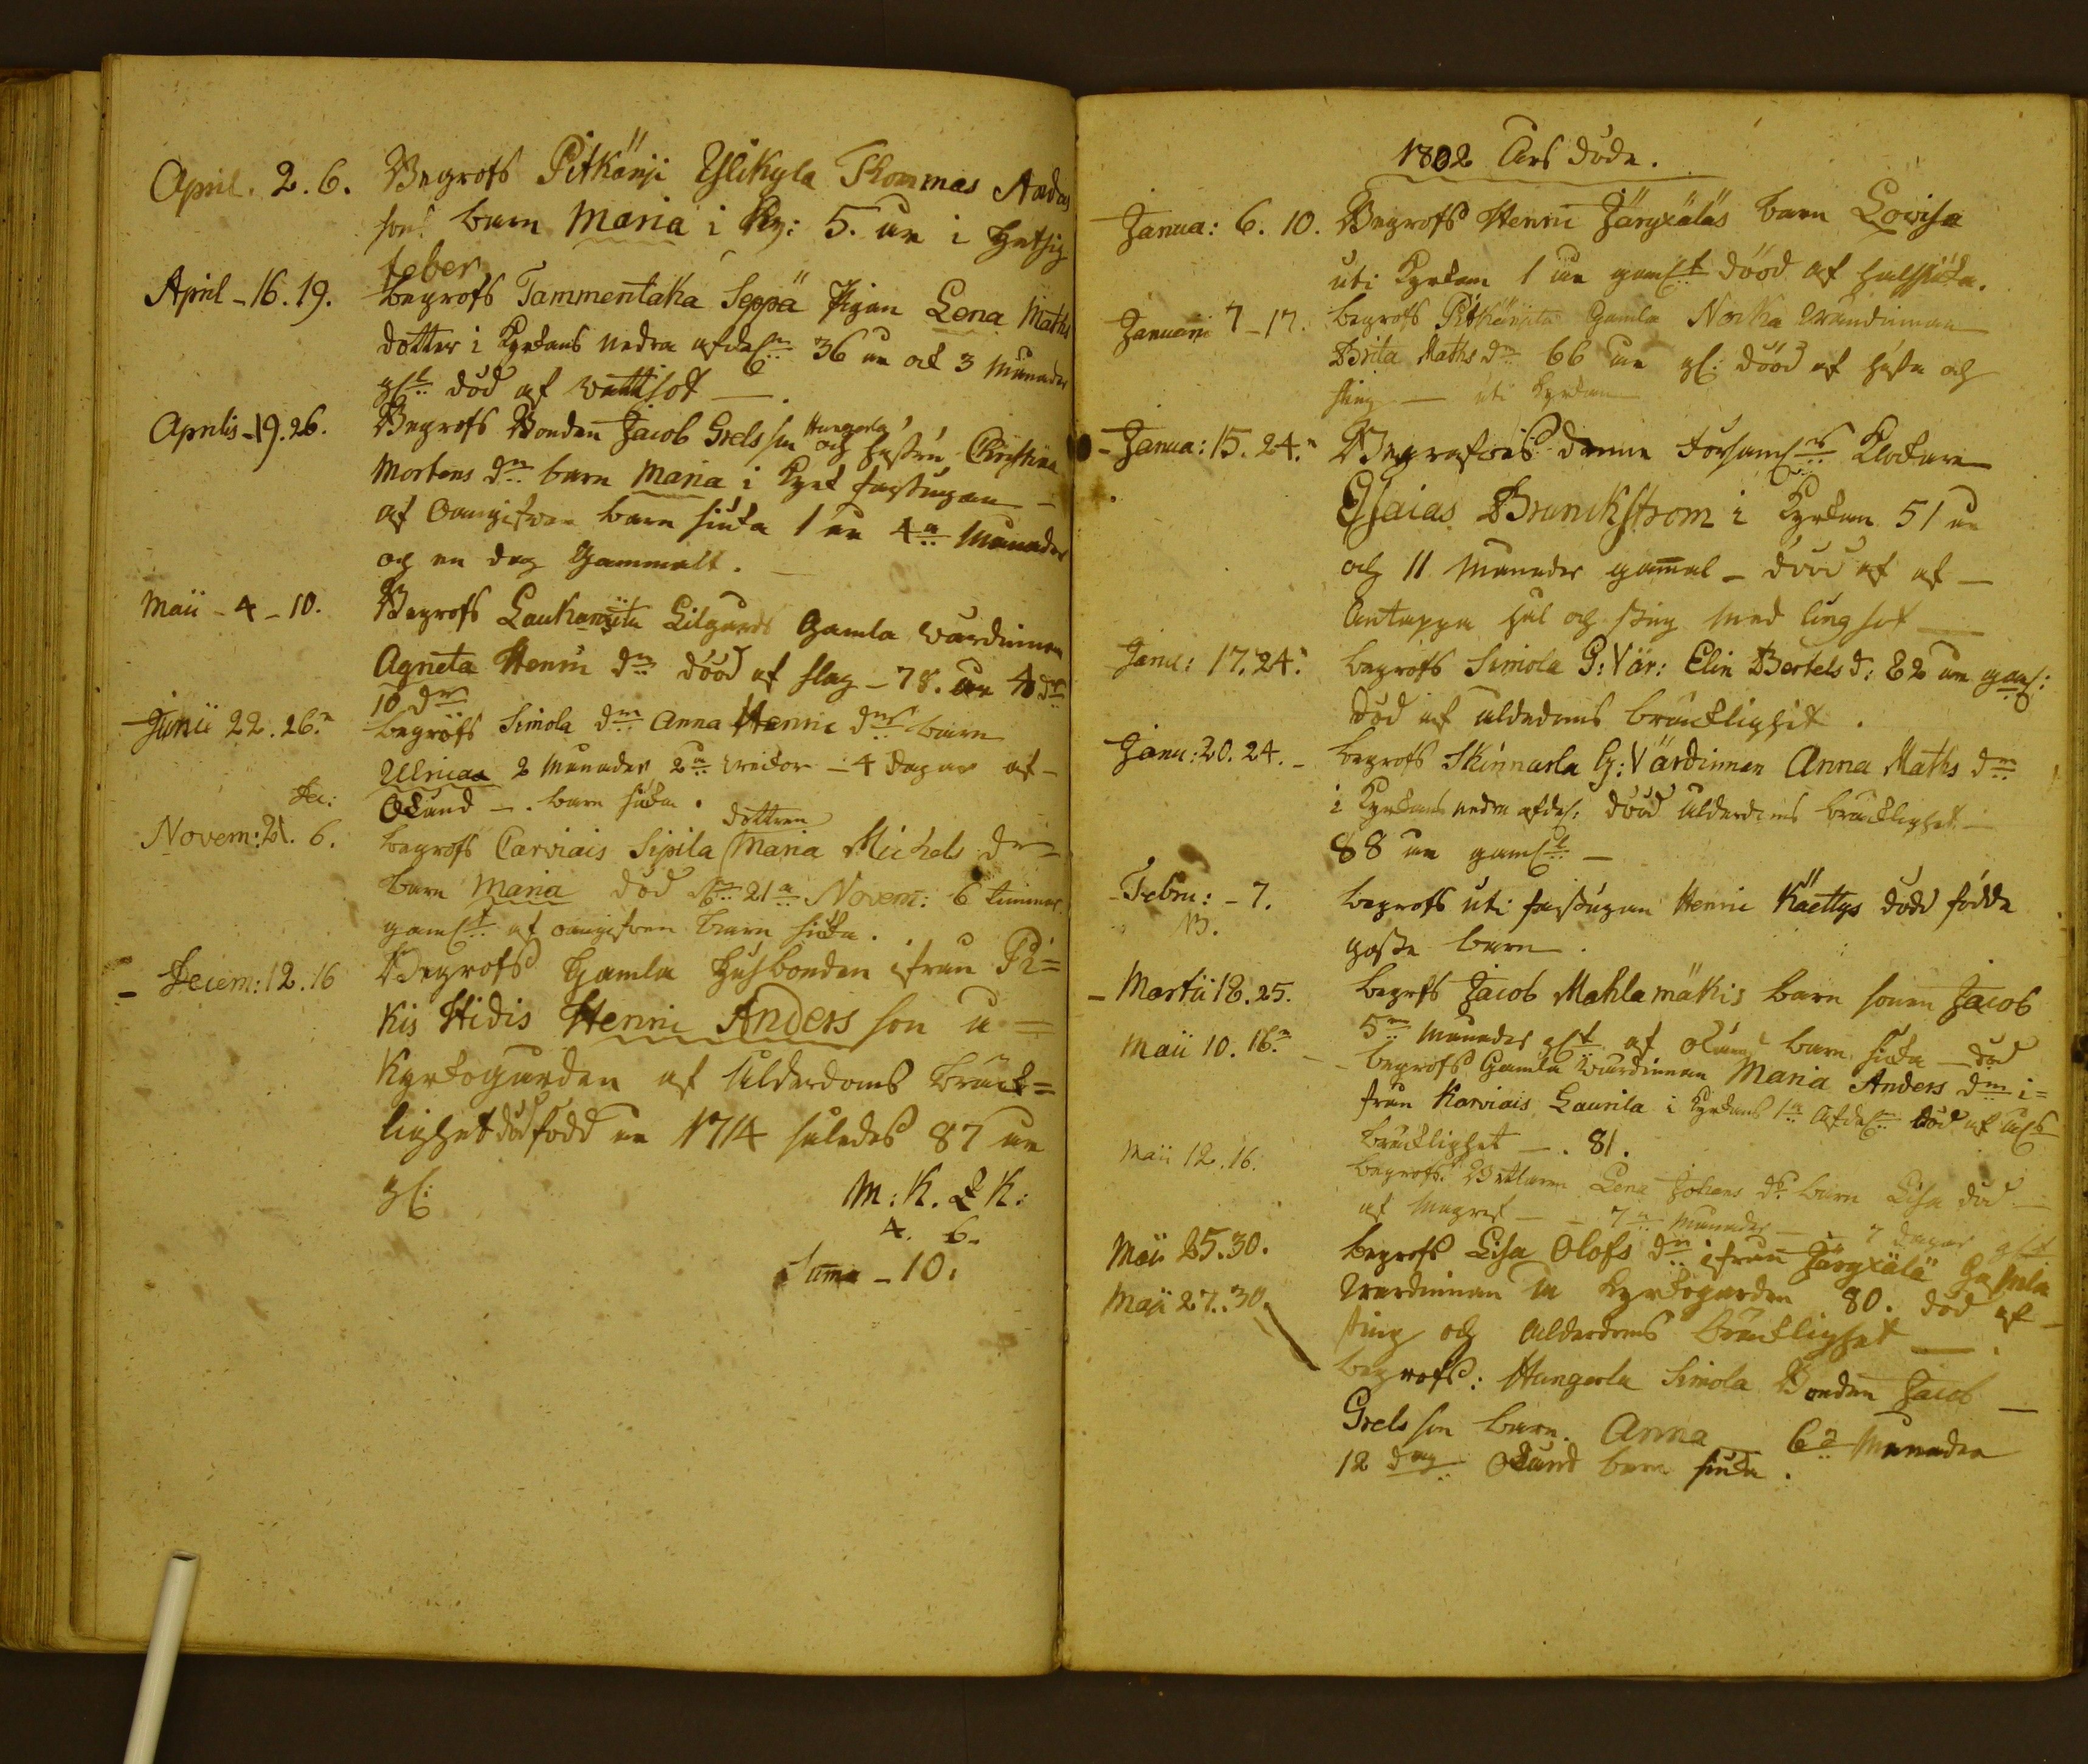 April. 2. 6. Begrofs Pitkänji Ylikyla Thommas Anders
sons barn Maria i Ky: 5. år i hetsig
feber
April - 16. 19. begrofs Tammentaka Seppä Pigan Lena Maths
dotter i Kyrkans nedra afdeln: 36 år och 3 månader
glt: död af wattsot —.
Aprilis - 19. 26. Begrofs Bonden Jacob Grels son Hungerla och hustru Christina
Mortens dr barn Maria i Kyrk farstugan —
af oangifven barn siuka 1 år 4a: månader
och en dag Gammalt. —
Maii - 4 - 10. Begrofs Laukanjita Lilgårds Gamla wärdinnan
Agneta Henric dr död af slag - 78. år 4 dr
10 dr
Junii 22. 26.n begrofs Simola dr Anna Henric drs barn
Ulrica 2 månader 2a: weckor - 4 dagar af -
Okänd —. barn siuka.
Dec:
Novem: 21. 6. begrofs Carviais Sipila dottren Maria Michels dr =
barn Maria död d: 21a: Novem: 6 timmar
gamlt: af oangifven barn siuka.
- Decem: 12. 16 Begrofs Gamla Husbonden ifrån Pi=
kis Hidis Henric Anders son u =
Kyrkogården af ålderdoms bräck=
lighet död född år 1714 således 87 år
gl: M: K. Q K:
4. 6.
Suma - 10.
1802 Års döde.
Janua: 6. 10. Begrofs Henric Järyxäläs barn Lovisa
uti Kyrkan 1 år gamlt död af halssiuka.
Januarii 7 - 17. begrofs Pitkänjita Gamla Norka wärdinnan
Brita Maths dr 66 år gl: död af hosta och
sting — uti Kyrkan
- Janua: 15. 24.n Begrafvas denne Församls: Klockare
Esaias Brunckstrom i Kyrkan 51 år
och 11 månader gammal - död af af —
Antappa hål och sting med lungsot —
Janu: 17. 24.n begrofs Simola G: Vär: Elin Bertels d: 82 år gaml:
död af ålderdoms bräcklighet.
Janu: 20. 24. - begrofs Skinnarla G: Värdinnan Anna Maths dr
i Kyrkans nedra afdel: död ålderdoms bräcklighet —
88 år gamlt: —
- Febru: - 7. begrofs uti farstugan Henric Käettys död födde
N. gosse barn.
- Martii 18. 25. begrofs Jacob Mahlamäkis barn sonen Jacob
5n: månader glt af okänd barn siuka — död
Maii 10. 16.n - begrofs Gamla wärdinnan Maria Anders dr i=
från Karviais Laurila i Kyrkans 1a: Afdel: död af åld:
bräcklighet —. 81.
Maii 12. 16. begrofs Lena Johans dr barn Lisa död —
af magref — - 7n: månader — 7 dagar glt
Maii 25. 30. begrofs Lisa Olofs dr: ifrån Järyxälä Gamla
wärdinnan in Kyrkogården 80. död af —
Maii 27. 30. sting och ålderdoms bräcklighet —.
begrofs: Hungerla Simola Bonden Jacob —
Grels son barn. Anna 6a: månader
12 dag: Okänd barn siuka.